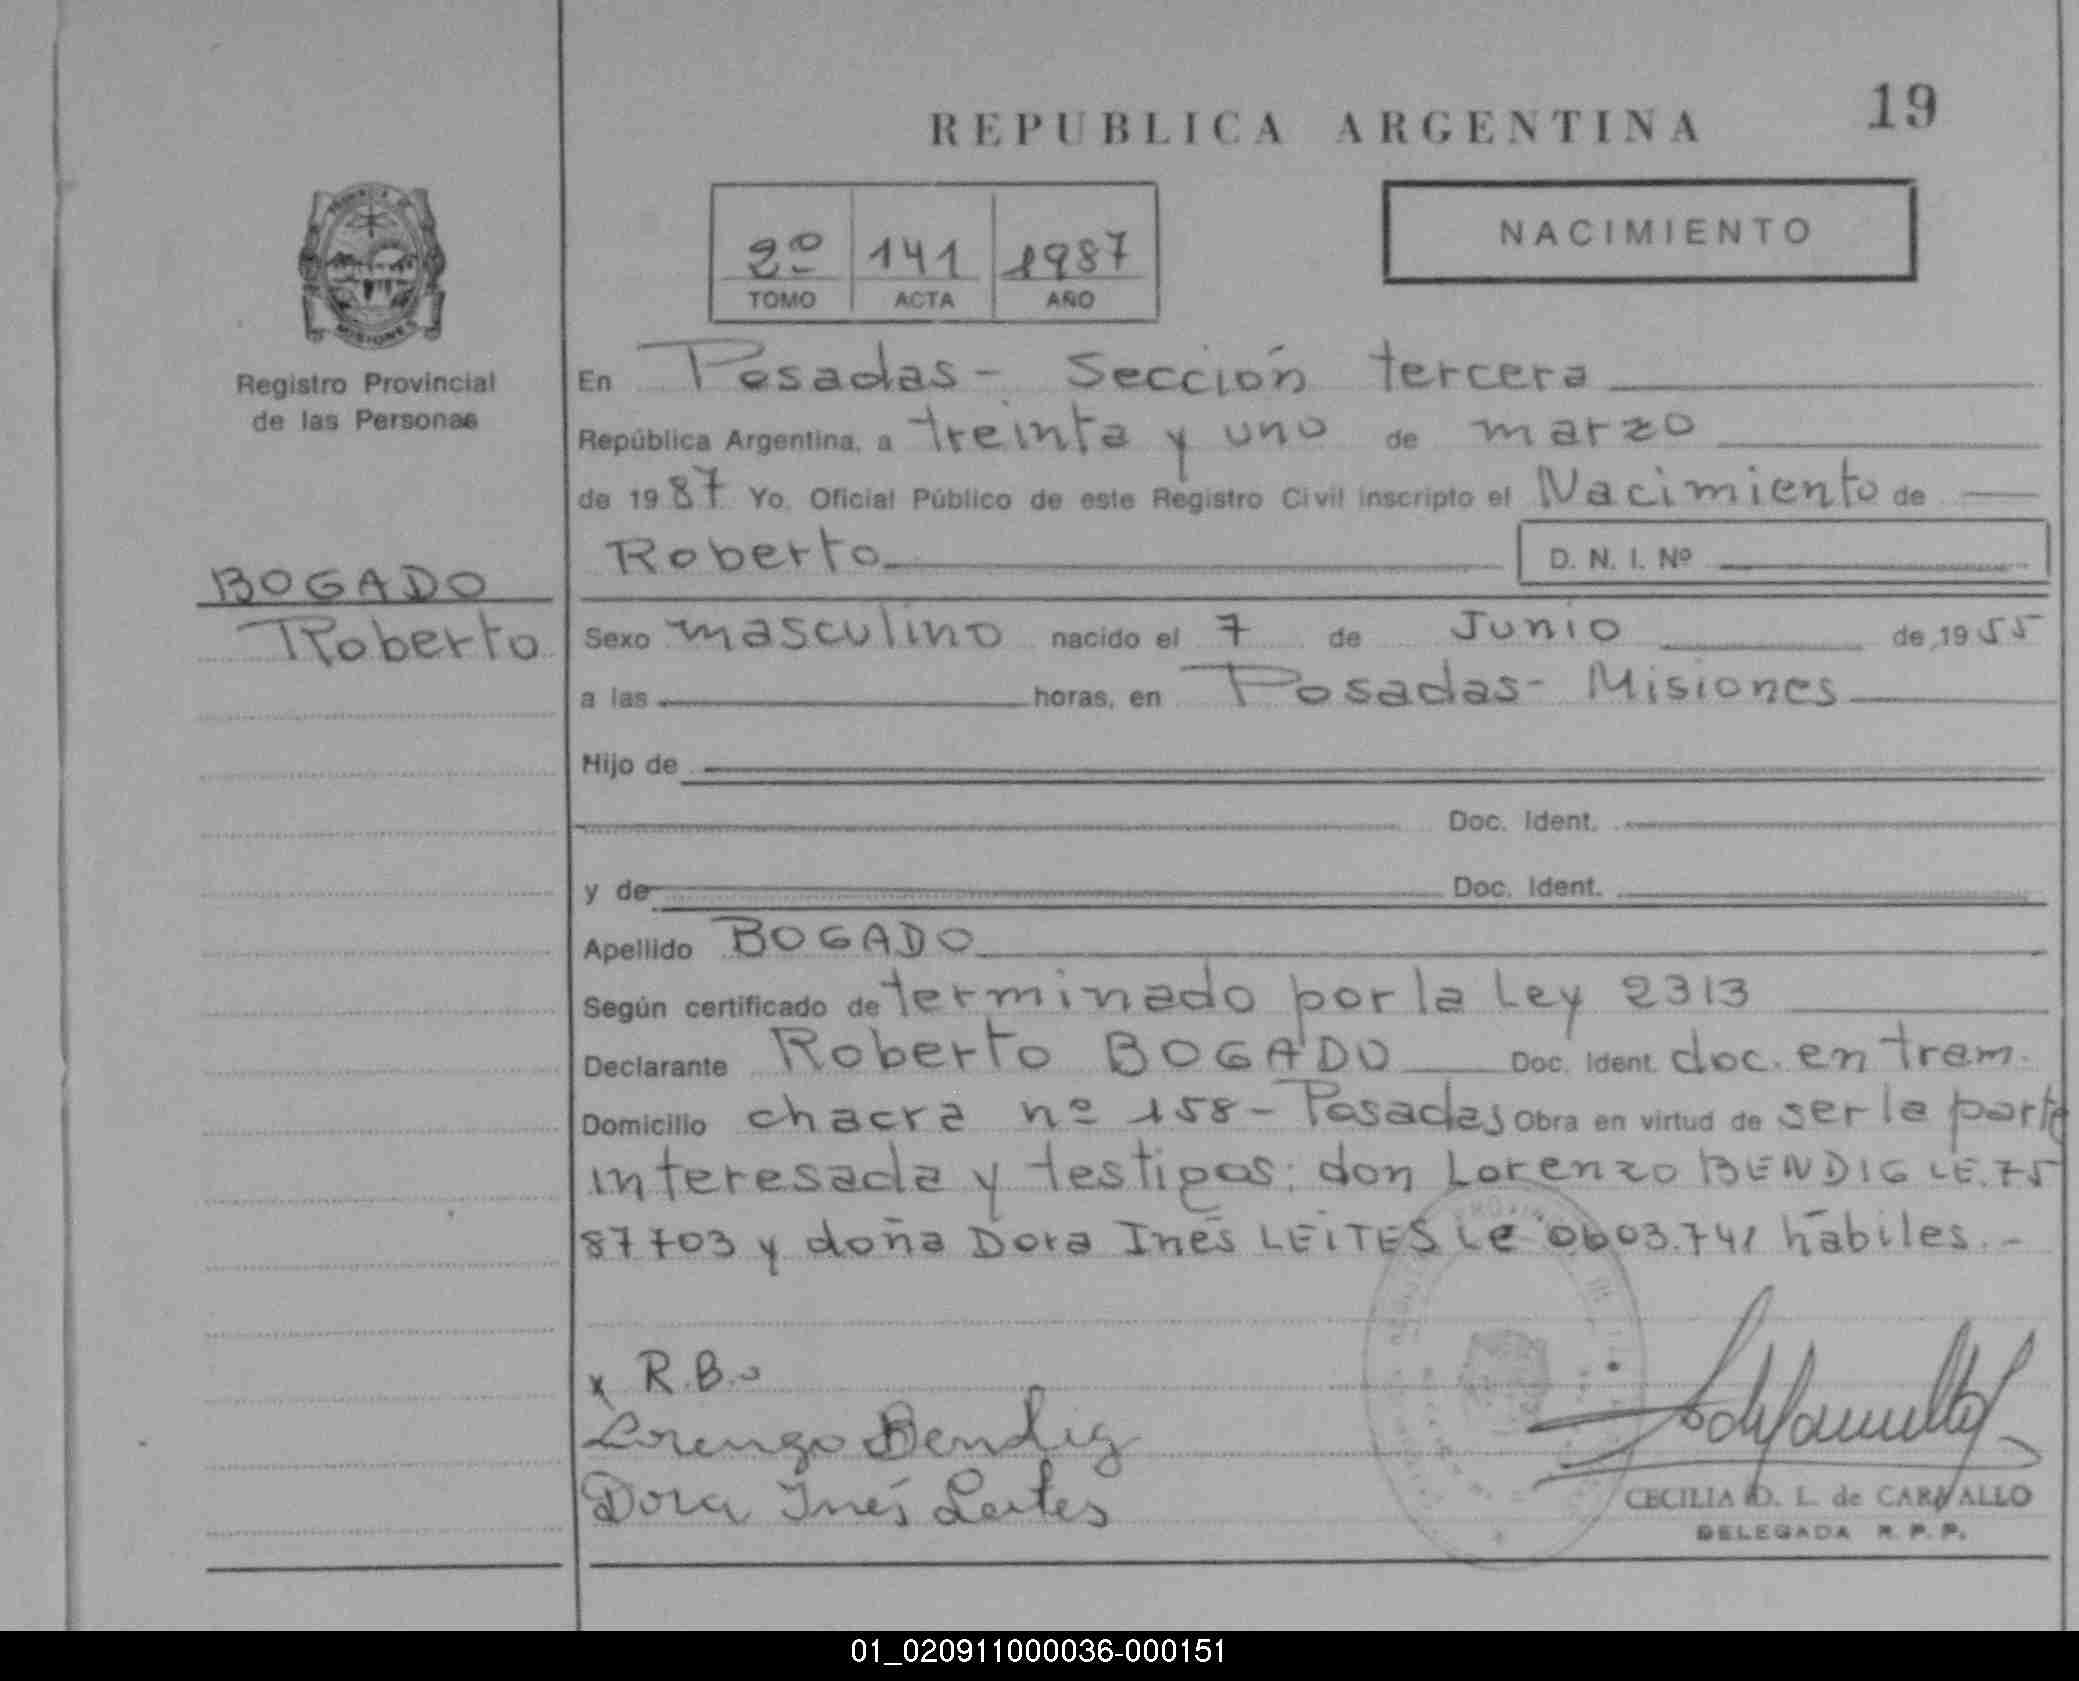 REPUBLICA ARGENTINA
19
2º 141 1987
TOMO ACTA AÑO
NACIMIENTO
MISIONES
Registro Provincial
de las Personas
BOGADO
Roberto
En Posadas - Sección tercera
República Argentina, a treinta y uno de marzo
de 1987 Yo, Oficial Público de este Registro Civil inscripto el Nacimiento de
Roberto D. N. I. Nº
Sexo masculino nacido el 7 de Junio de 1955
a las horas, en Posadas - Misiones
Hijo de
Doc. Ident.
y de Doc. Ident.
Apellido BOGADO
Según certificado de terminado por la Ley 2313
Declarante Roberto BOGADO Doc. Ident. doc. en tram.
Domicilio chacra nº 158 - Posadas Obra en virtud de ser la parte
interesada y testigos: don Lorenzo BENDIG LE. 75
87703 y doña Dora Inés LEITES Le 0603.741 hábiles. -
x R.B.
Lorenzo Bendig
Dora Inés Leites
CECILIA D. L. de CARVALLO
DELEGADA R. P. P.
01_020911000036-000151